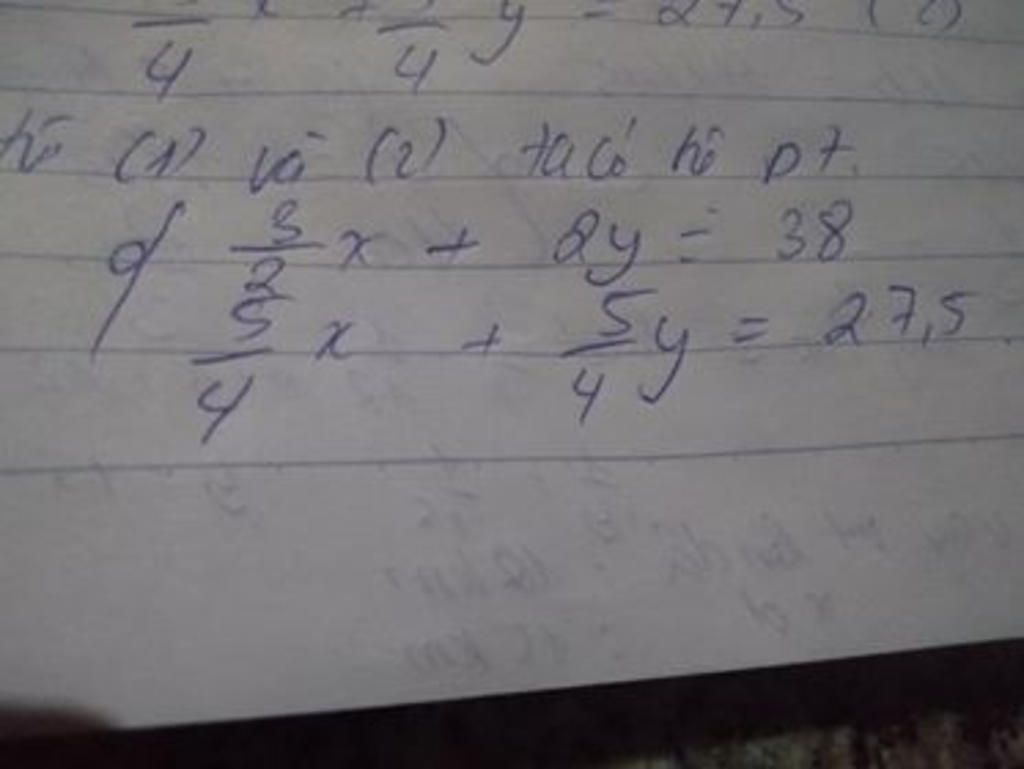 /4 x + /4 y = 27,5 (2)
từ (1) và (2) ta có hệ pt.
{ 3/2 x + 2y = 38
5/4 x + 5/4 y = 27,5